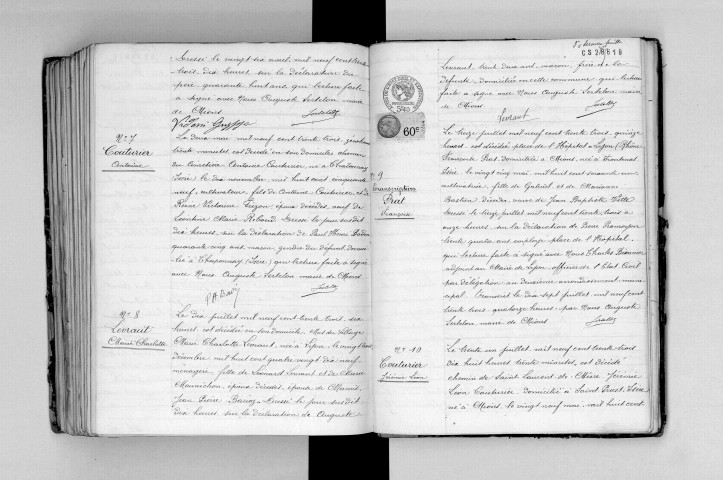 Dressé le vingt six avril mil neuf cent trente
trois, dix heures sur la déclaration du
père, quarante huit ans, qui lecture faite
a signé avec Nous Auguste Sertelon maire
de Mions
N° 7
Couturier
Antoine
Le deux mai mil neuf cent trente trois, zéro heure
trente minutes, est décédé en son domicile chemin
du cimetière Antoine Couturier, né à Chaponnay
Isère le dix novembre mil huit cent cinquante
neuf, cultivateur, fils de Couturier et de
Reine Victorine époux décédés, veuf de
Marie Dressé le jour susdit
dix heures, sur la déclaration de Paul Henri
quarante cinq ans, maçon, gendre du défunt domicilié
à Chaponnay (Isère) qui lecture faite a signé
avec Nous Auguste Sertelon maire de Mions
N° 8
Levraut
Marie Charlotte
Le dix juillet mil neuf cent trente trois, six
heures, est décédée en son domicile, du village
Marie Charlotte Levraut, née à Lyon, le vingt
Décembre mil huit cent quatre vingt dix neuf
ménagère, fille de Léonard Levraut et de Marie
époux décédés, épouse de
Jean Pierre Dressé le jour susdit
dix heures, sur la déclaration de Auguste
CS 28618
Levraut, trente deux ans, maçon, frère de la
défunte, domicilié en cette commune, qui lecture
faite a signé avec Nous Auguste Sertelon maire
de Mions
Levraut
60c
N° 9
Transcription
Prat
Françoise
Le treize juillet mil neuf cent trente trois, quinze
heures, est décédée place de l'Hôpital à Lyon (Rhône)
Françoise Prat domiciliée à Mions, née à
Isère, le vingt cinq mai mil huit cent soixante
cultivatrice, fille de Gabriel et de Marianne
Bastien décédés, veuve de Jean Baptiste
Dressé le treize juillet mil neuf cent trente trois à
onze heures sur la déclaration de Pierre
trente quatre ans employé place de l'Hôpital,
qui lecture faite a signé avec Nous Charles
adjoint au Maire de Lyon, officier de l'Etat Civil
par délégation au deuxième arrondissement muni-
cipal. Transcrit le dix sept juillet mil neuf cent
trente trois, quatorze heures, par Nous Auguste
Sertelon maire de Mions
N° 10
Couturier
Jérémie Léon
Le trente un juillet mil neuf cent trente trois
dix huit heures trente minutes, est décédé
chemin de Saint Laurent de Mure Jérémie
Léon Couturier domicilié à Saint Priest, Isère
né à Mions, le vingt neuf mai mil huit cent